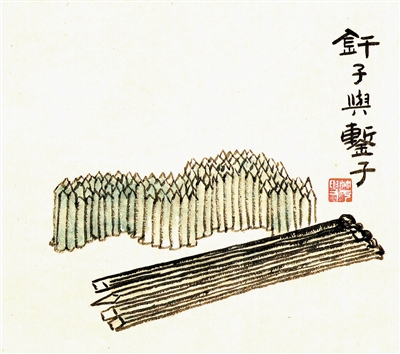 釬子與鏨子